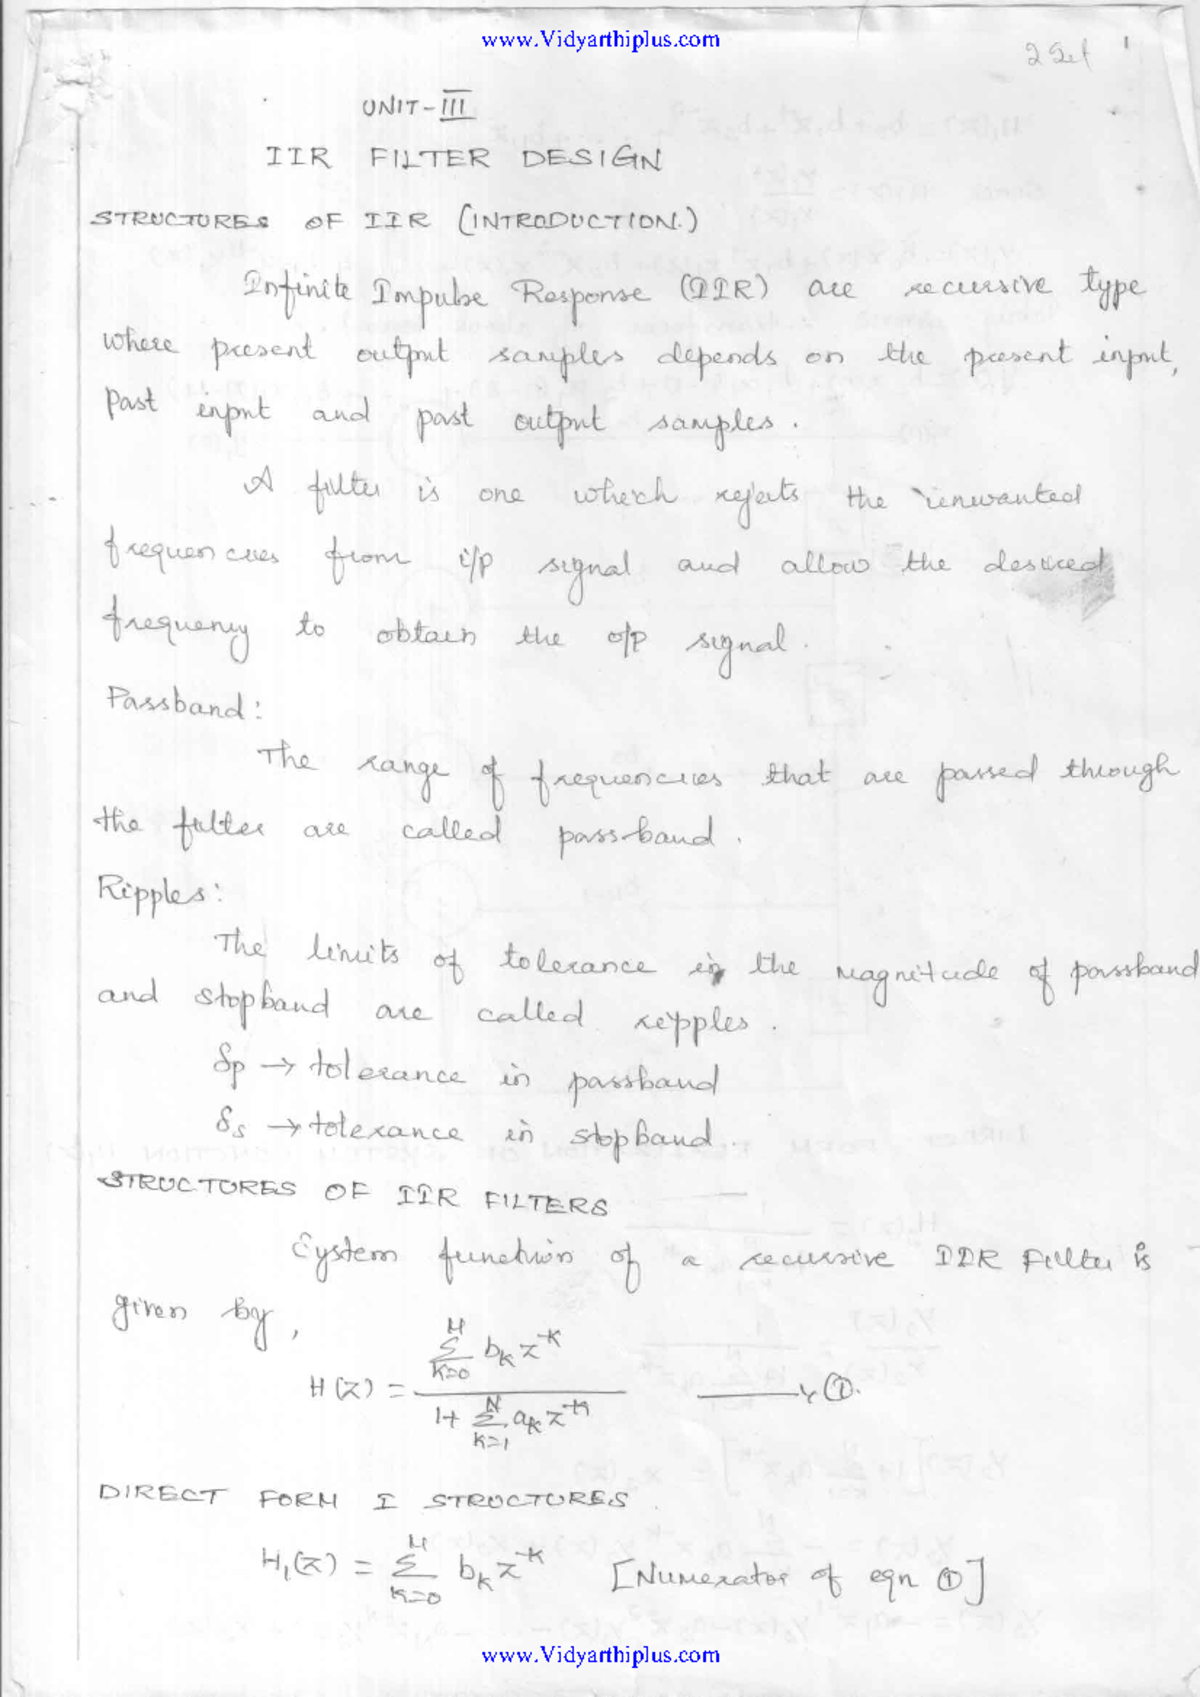 www.Vidyarthiplus.com
1
UNIT-III
IIR FILTER DESIGN
STRUCTURES OF IIR (INTRODUCTION.)
Infinite Impulse Response (IIR) are recursive type
where present output samples depends on the present input,
Past input and past output samples.
A filter is one which rejects the unwanted
frequencies from i/p signal and allow the desired
frequency to obtain the o/p signal.
Passband:
The range of frequencies that are passed through
the filter are called passband.
Ripples:
The limits of tolerance in the magnitude of passband
and stopband are called ripples.
δp → tolerance in passband
δs → tolerance in stopband.
STRUCTURES OF IIR FILTERS
System function of a recursive IIR Filter is
given by,
H(z) = \frac{\sum_{k=0}^{M} b_k z^{-k}}{1+\sum_{k=1}^{N} a_k z^{-k}} → ①.
DIRECT FORM I STRUCTURES
H₁(z) = \sum_{k=0}^{M} b_k z^{-k} [Numerator of eqn ①]
www.Vidyarthiplus.com